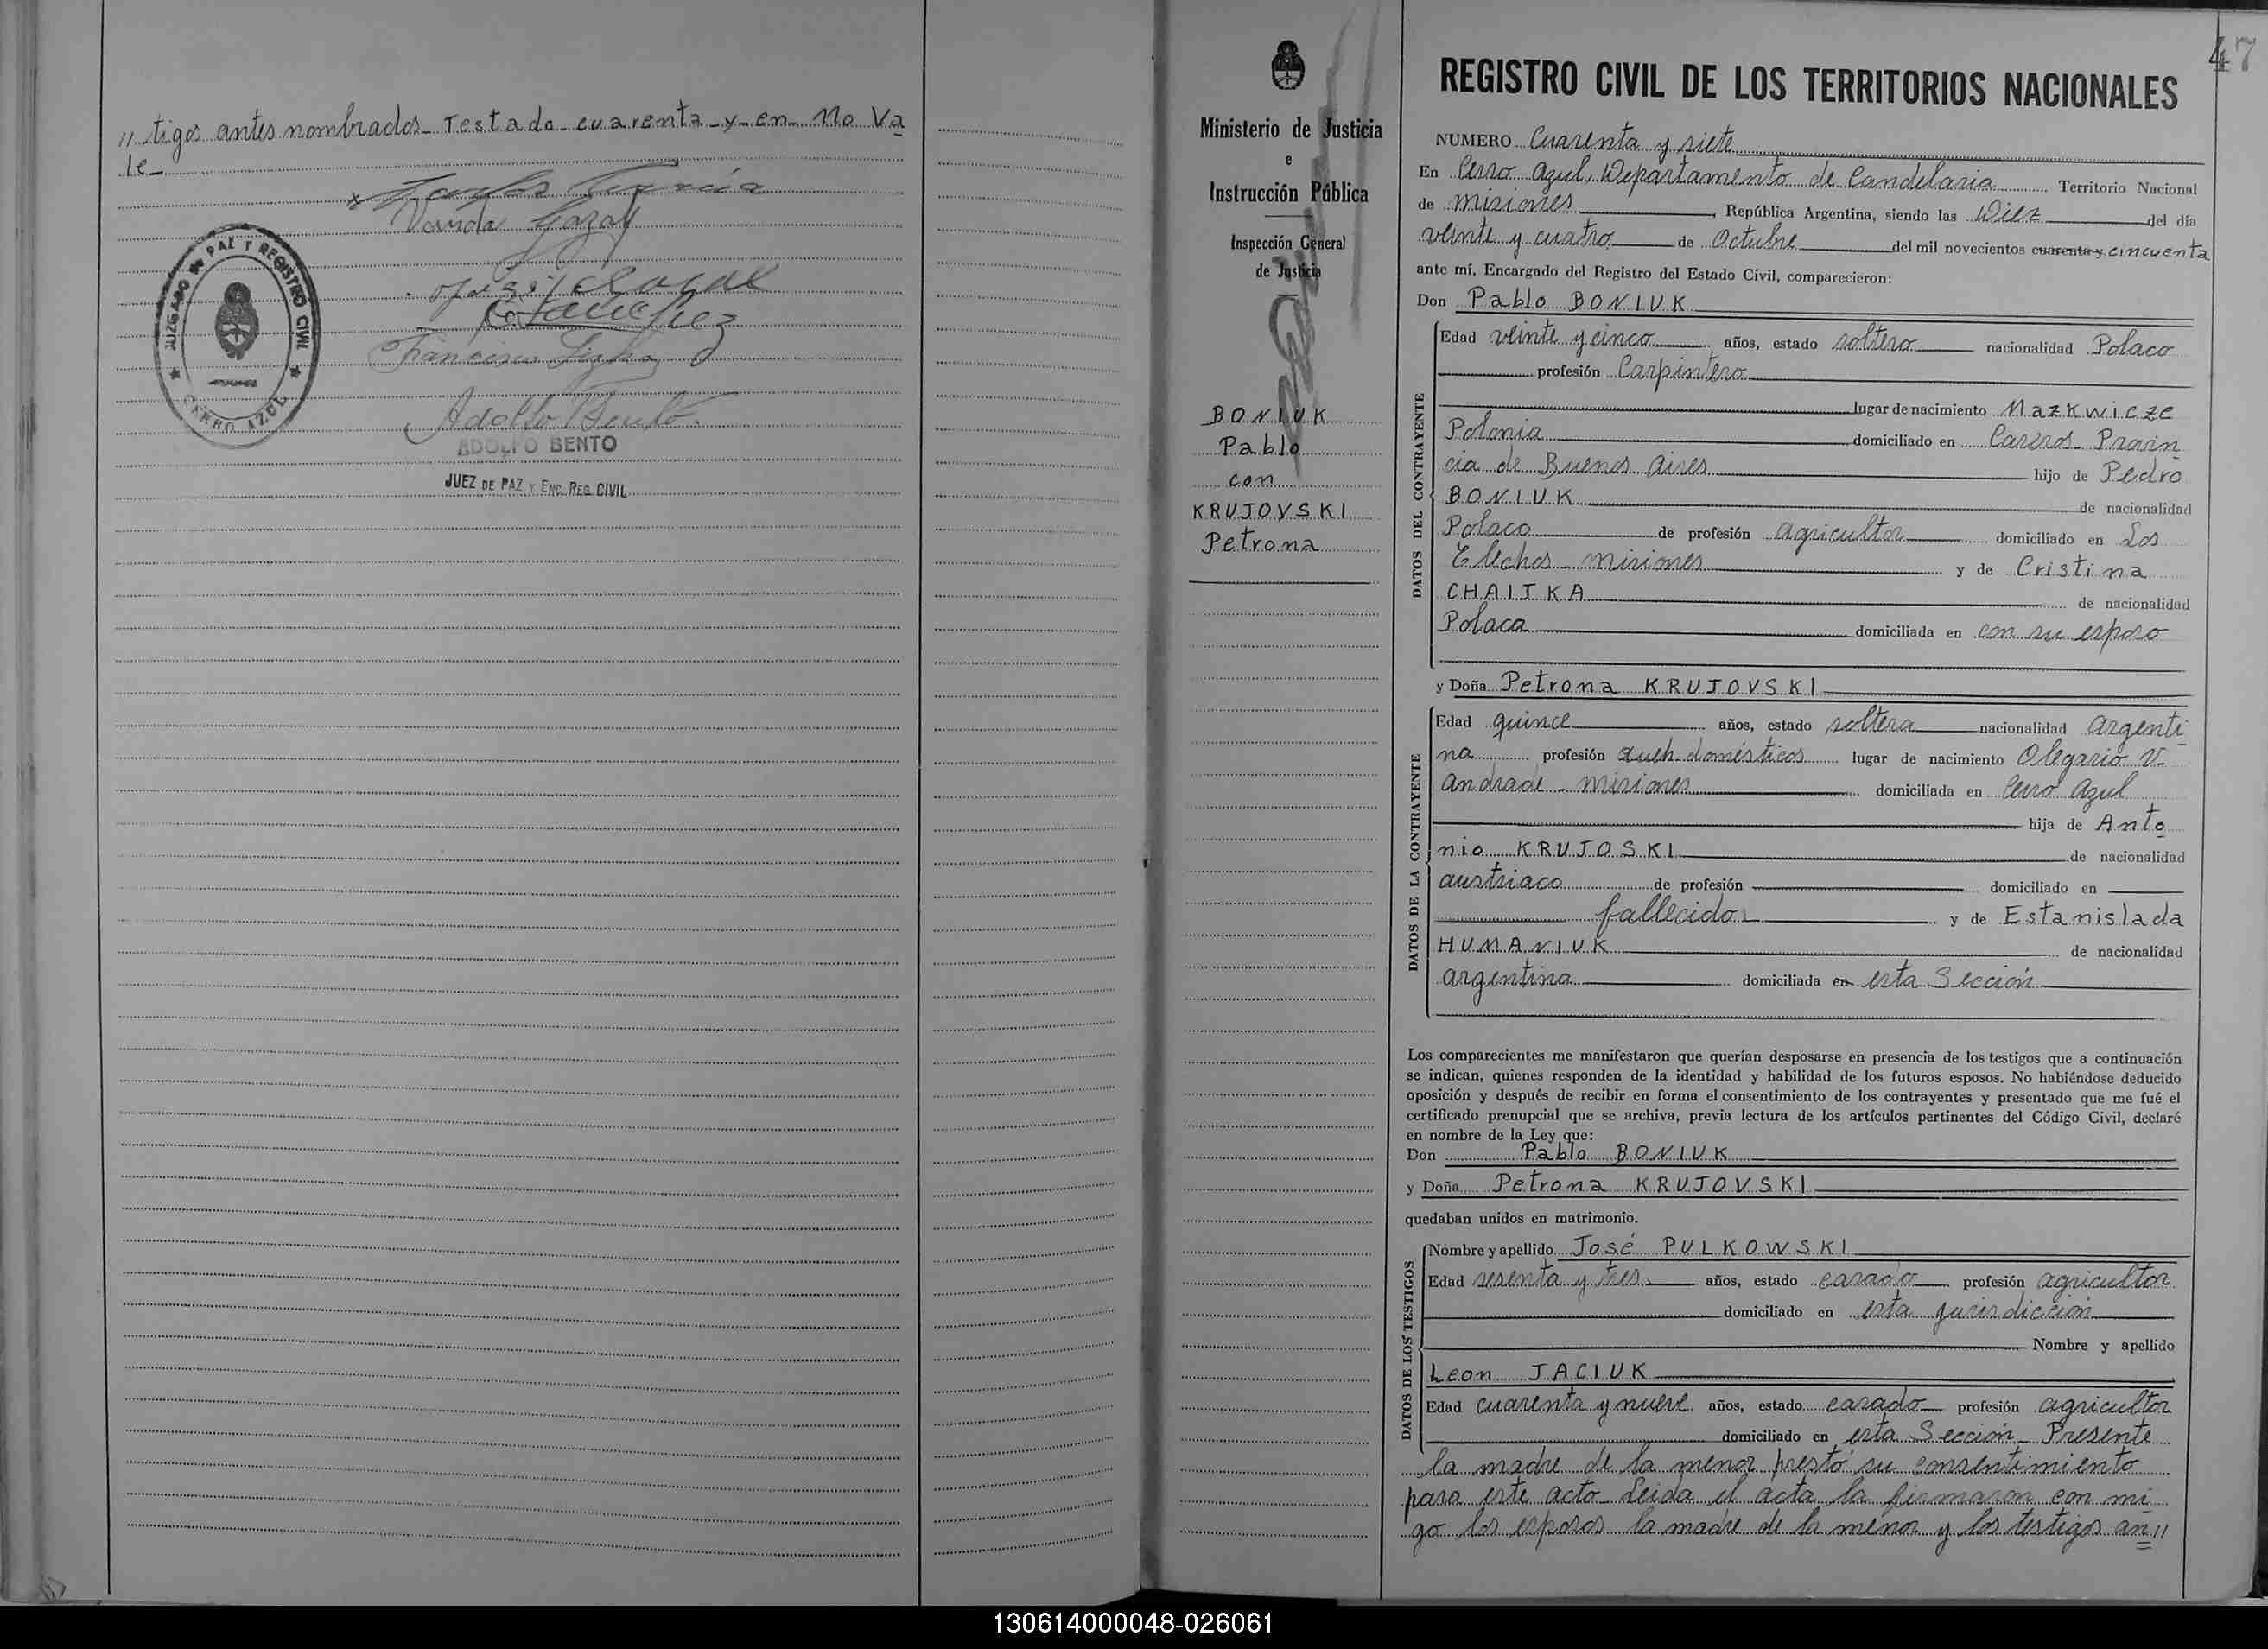 // tigos antes nombrados - Testado - cuarenta - y - en - No Va
le -
JUZGADO DE PAZ Y REGISTRO CIVIL
CERRO AZUL
Adolfo Bento
ADOLFO BENTO
JUEZ DE PAZ Y ENC. REG. CIVIL
Ministerio de Justicia
e
Instrucción Pública
Inspección General
de Justicia
BONIUK
Pablo
con
KRUJOVSKI
Petrona
47
REGISTRO CIVIL DE LOS TERRITORIOS NACIONALES
NUMERO Cuarenta y siete
En Cerro Azul, Departamento de Candelaria Territorio Nacional
de Misiones, República Argentina, siendo las Diez del día
veinte y cuatro de Octubre del mil novecientos cuarenta y cincuenta
ante mí, Encargado del Registro del Estado Civil, comparecieron:
Don Pablo BONIUK
DATOS DEL CONTRAYENTE
Edad veinte y cinco años, estado soltero nacionalidad Polaco
profesión Carpintero
lugar de nacimiento Mazkwicze
Polonia domiciliado en Caseros Provin
cia de Buenos Aires hijo de Pedro
BONIUK de nacionalidad
Polaco de profesión agricultor domiciliado en Los
Elechos - Misiones y de Cristina
CHAIJKA de nacionalidad
Polaca domiciliada en con su esposo
y Doña Petrona KRUJOVSKI
DATOS DE LA CONTRAYENTE
Edad quince años, estado soltera nacionalidad argenti
na profesión queh. domésticos lugar de nacimiento Olegario V.
Andrade - Misiones domiciliada en Cerro Azul
hija de Anto
nio KRUJOSKI de nacionalidad
austriaco de profesión domiciliado en
fallecido y de Estanislada
HUMANIUK de nacionalidad
argentina domiciliada en esta Sección
Los comparecientes me manifestaron que querían desposarse en presencia de los testigos que a continuación
se indican, quienes responden de la identidad y habilidad de los futuros esposos. No habiéndose deducido
oposición y después de recibir en forma el consentimiento de los contrayentes y presentado que me fué el
certificado prenupcial que se archiva, previa lectura de los artículos pertinentes del Código Civil, declaré
en nombre de la Ley que:
Don Pablo BONIUK
y Doña Petrona KRUJOVSKI
quedaban unidos en matrimonio.
DATOS DE LOS TESTIGOS
Nombre y apellido José PULKOWSKI
Edad sesenta y tres años, estado casado profesión agricultor
domiciliado en esta jurisdicción
Nombre y apellido
Leon JACIUK
Edad cuarenta y nueve años, estado casado profesión agricultor
domiciliado en esta Sección - Presente
la madre de la menor prestó su consentimiento
para este acto - Leida el acta la firmaron con mi
go los esposos la madre de la menor y los testigos an //
130614000048-026061